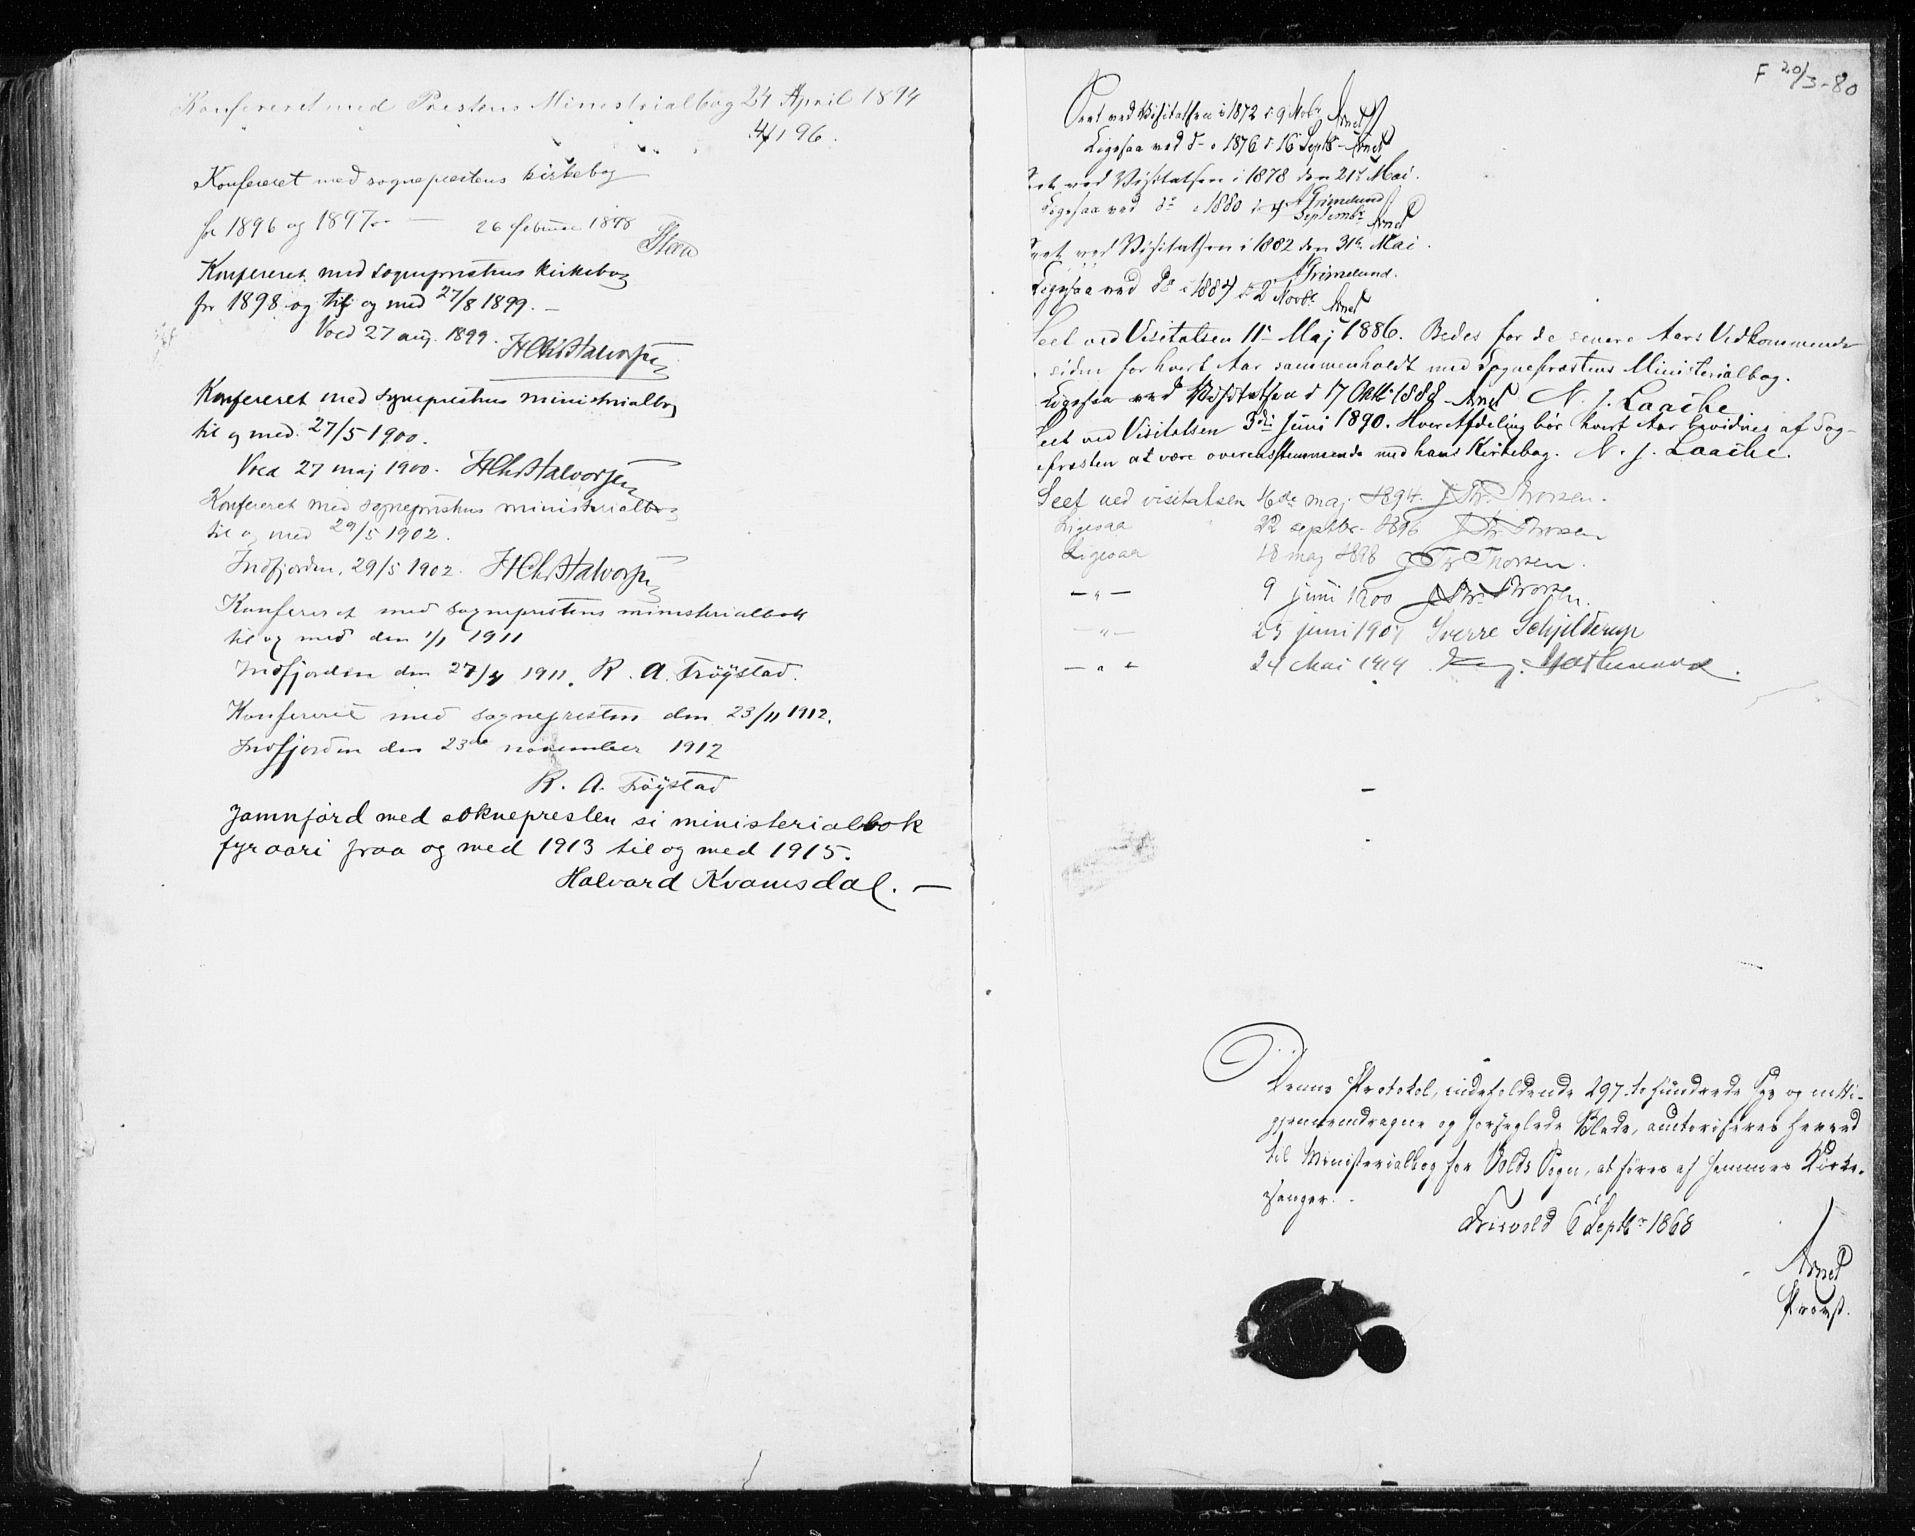 Konfereret med Prestens Ministerialbog 24 April 1894
" " " " 4/1 96.
Konfereret med sogneprestens kirkebog
for 1896 og 1897. — 26 februar 1898
Konfereret med sogneprestens kirkebog
for 1898 og til og med 27/8 1899. —
Vold 27 aug. 1899. H Chr Halvorsen
Konfereret med sogneprestens ministerialbog
til og med 27/5 1900.
Vold 27 maj 1900. H Chr Halvorsen
Konfereret med sogneprestens ministerialbog
til og med 29/5 1902.
Indfjorden, 29/5 1902. H Chr Halvorsen
Konfereret med sogneprestens ministerialbok
til og med den 1/1 1911
Indfjorden den 27/4 1911. R. A. Trøystad.
Konfereret med sognepresten den 23/11 1912.
Indfjorden den 23de november 1912
R. A. Trøystad
Jamnførd med soknepresten si ministerialbok
fyr aari fraa og med 1913 til og med 1915.
Halvard Kvamsdal. —
F 20/3-80
Seet ved Visitatsen i 1872 d. 9 Novbr Arnet
Ligesaa ved do i 1876 d. 16 Septbr Arnet
Seet ved Visitatsen i 1878 den 21de Mai.
A Grimelund
Ligesaa ved do i 1880 d. 4 Septembr Arnet
Seet ved Visitatsen i 1882 den 31te Mai.
A Grimelund.
Ligesaa ved do i 1884 d. 2 Novbr Arnet
Seet ved Visitatsen 11te Maj 1886. Bedes for de senere Aars Vedkommende
siden for hvert Aar sammenholdt med Sogneprestens Ministerialbog.
Ligesaa ved Visitatsen d 7 Oktbr 1888 Arnet N. J. Laache
Seet ved Visitatsen 3die Juni 1890. Hver Afdeling bør hvert Aar bevidnes af Sog-
nepræsten at være overensstemmende med hans Kirkebog. N. J. Laache.
Seet ved visitatsen 16de maj 1894. J Thr. Thorsen.
Ligesaa 22 septbr. 1896 J Thr. Thorsen
Ligesaa 18 maj 1898 J Thr Thorsen.
— " — 9 juni 1900 J Thr. Thorsen.
— " — 25 juni 1907 Sverre Schjelderup
— " — 24 Mai 1914
Denne Protokol, indeholdende 297 to hundrede syv og nitti-
gjennemdragne og forseglede Blade, autoriseres herved
til Ministerialbog for Volds Sogn, at føres af sammes Kirke-
sanger.
Frisvold 6 Septbr 1868
Arnet
Provst.